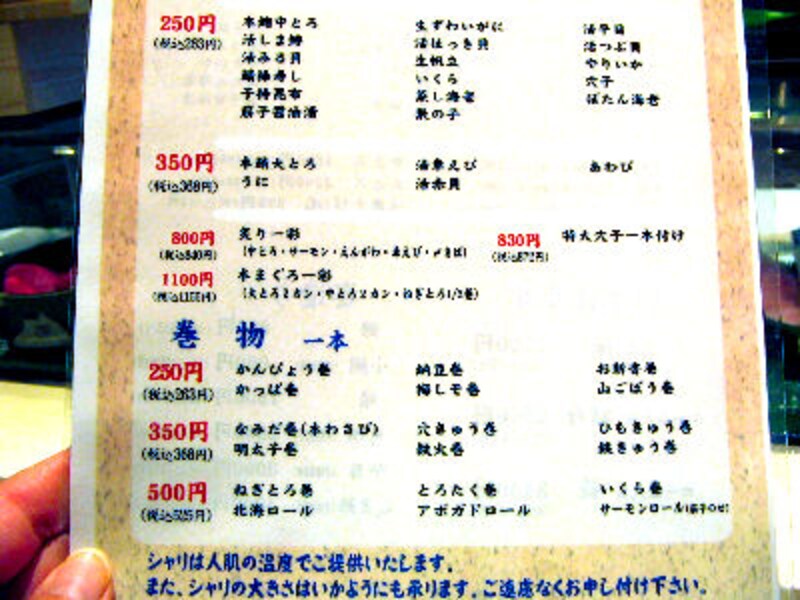 250円 本鮪中とろ 生ずわいがに 活平目
(税込263円) 活しま鯵 活ほっき貝 活つぶ貝
活みる貝 生帆立 やりいか
鯖棒寿し いくら 穴子
子持昆布 蒸し海老 ぼたん海老
筋子醤油漬 数の子
350円 本鮪大とろ 活車えび あわび
(税込368円) うに 活赤貝
800円 炙り一彩 830円 特大穴子一本付け
(税込840円) (中とろ・サーモン・えんがわ・赤えび・〆さば) (税込872円)
1100円 本まぐろ一彩
(税込1155円) (大とろ2カン・中とろ2カン・ねぎとろ1/2巻)
巻物 一本
250円 かんぴょう巻 納豆巻 お新香巻
(税込263円) かっぱ巻 梅しそ巻 山ごぼう巻
350円 なみだ巻(本わさび) 穴きゅう巻 ひもきゅう巻
(税込368円) 明太子巻 鉄火巻 鉄きゅう巻
500円 ねぎとろ巻 とろたく巻 いくら巻
(税込525円) 北海ロール アボガドロール サーモンロール
シャリは人肌の温度でご提供いたします。
また、シャリの大きさはいかようにも承ります。ご遠慮なくお申し付け下さい。